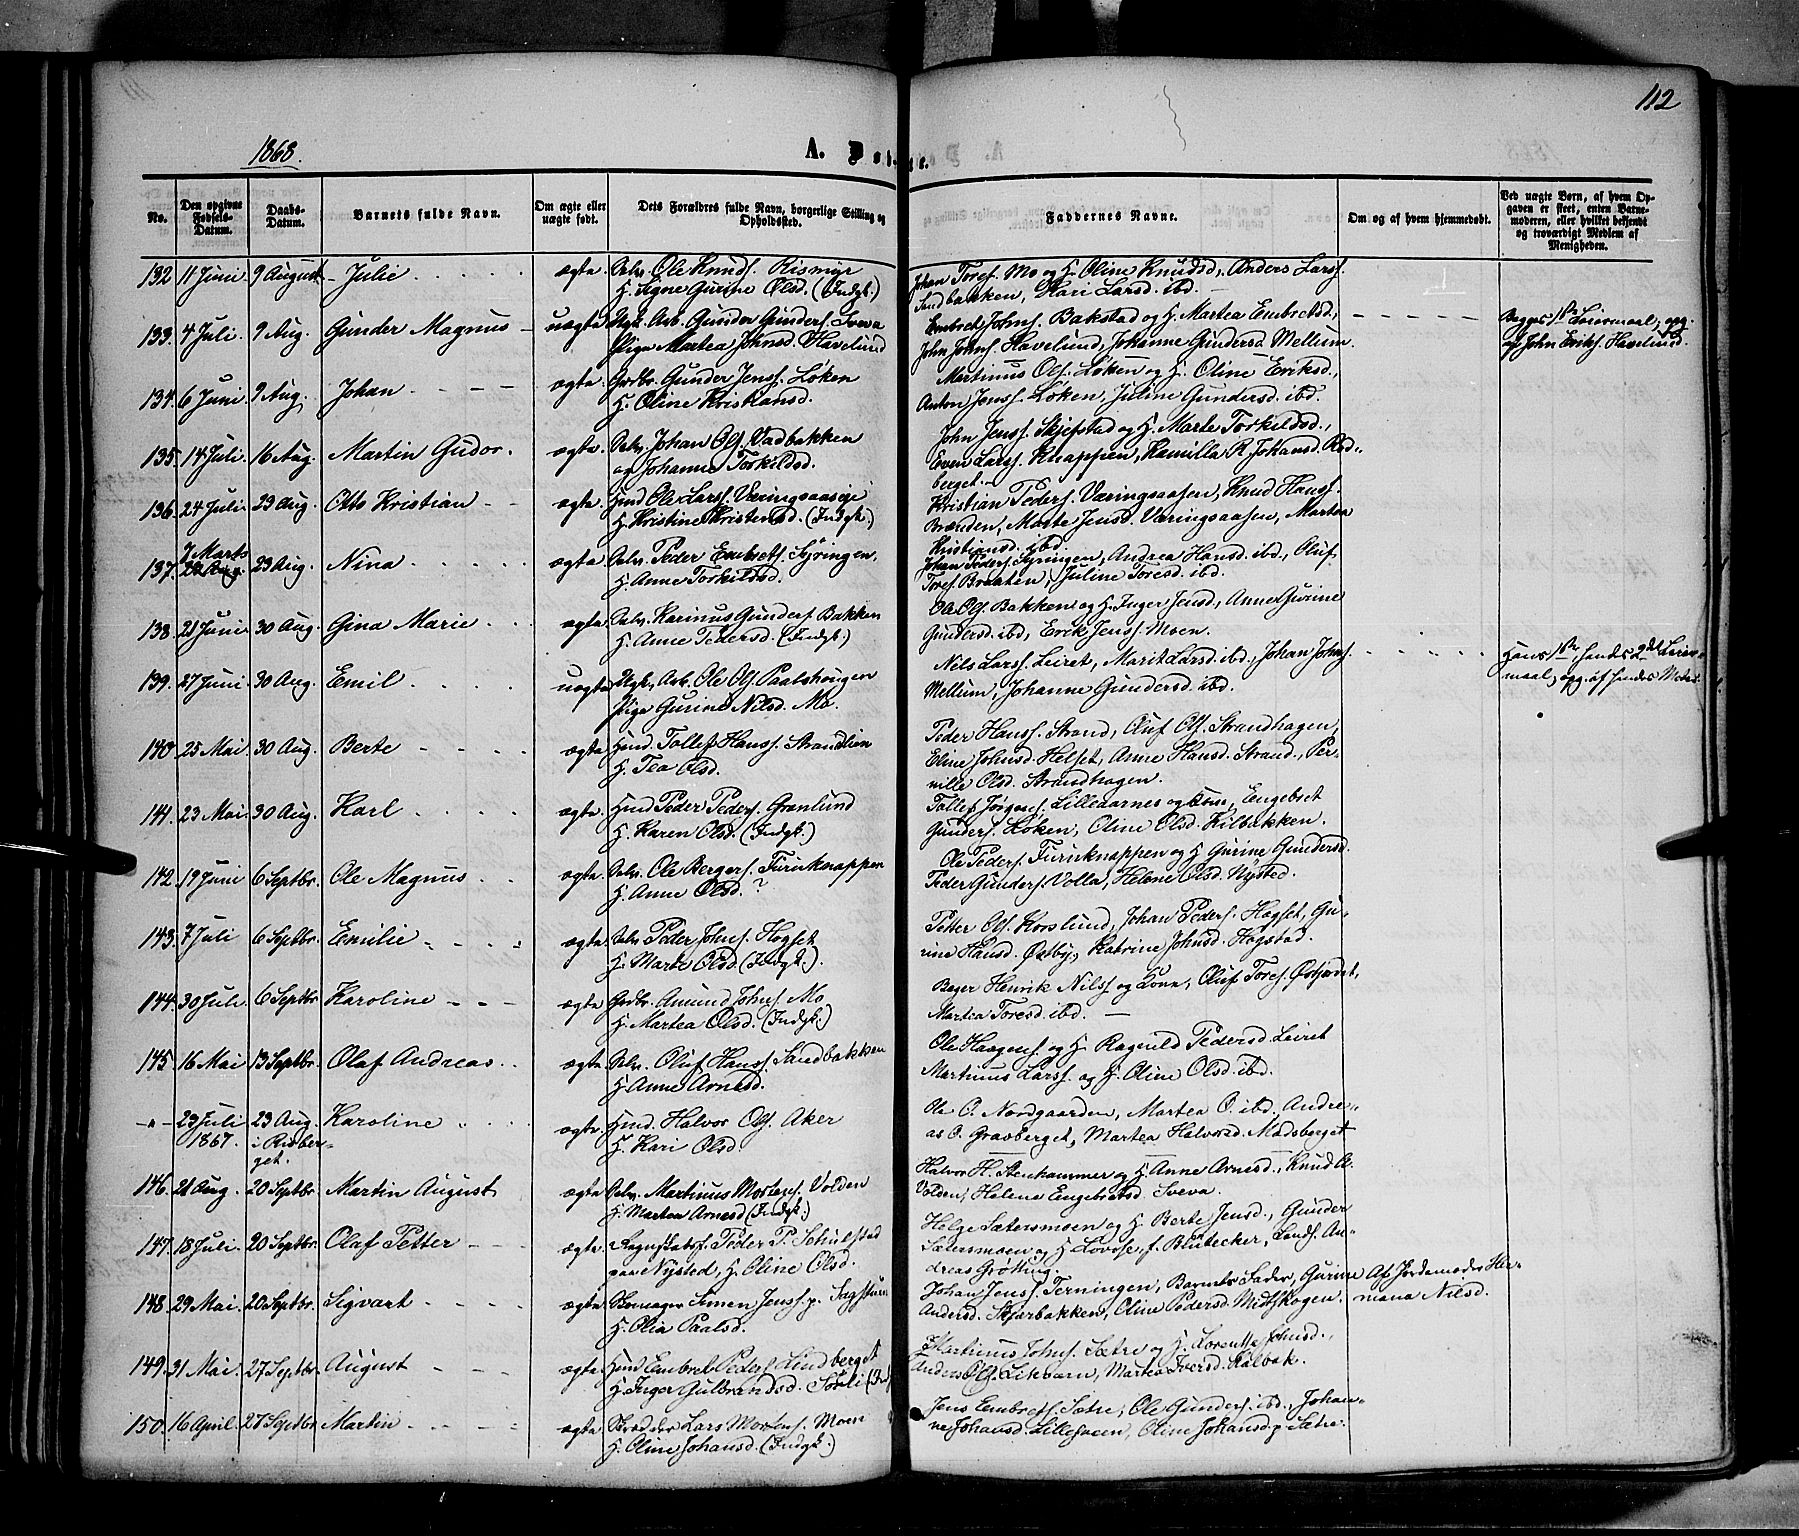 112
1868.
A. Døbte.
No.
Den opgivne Fødsels-Datum.
Daabs-Datum.
Barnets fulde Navn.
Om ægte eller uægte født.
Dets Forældres fulde Navn, borgerlige Stilling og Opholdssted.
Faddernes Navne.
Om og af hvem hjemmedøbt.
Ved uægte Børn, af hvem Opgaven er skeet, enten Barnemoderen, eller hvilket bekjendt og troværdigt Medlem af Menigheden.
132 11 Juni 9 August Julie ægte Selv. Ole Knuds. Rismyr
H. Signe Gurine Olsd. (Indgk.)
Johan Tores. Mo og H. Oline Knudsd., Anders Larss.
Sandbakken, Kari Larsd. ibd.
133. 4 Juli. 9 Aug. Gunder Magnus uægte Ugk. Arb. Gunder Gunders. Sveva
Pige Martea Johnsd. Havelund
Embret Johns. Bakstad og H. Martea Embretsd.,
John Johns. Havelund, Johanne Gundersd. Mellum.
Begges 1ste Leiermaal, opg.
af John Eriks. Havelund.
134. 6 Juni 9 Aug. Johan ægte Grdbr. Gunder Jenss. Løken
H. Oline Kristiansd.
Martinus Ols. Løken og H. Oline Eriksd.,
Anton Jenss. Løken, Juline Gundersd. ibd.
135. 14 Juli. 16 Aug. Martin Gudor. ægte Selv. Johan Ols. Vadbakken
og Johanne Torkildsd.
John Jenss. Skjefstad og H. Marte Torkildsd.,
Even Larss. Knappen, Kamilla R Johansd. Rød-
berget.
136. 24 Juli. 23 Aug. Otto Kristian ægte Hmd Ole Larss. Væringsaaseie
H. Kristine Kristensd. (Indgk.)
Kristian Peders. Væringsaasen, Knud Hanss.
Brænden, Marte Jensd. Væringsaasen, Martea
Kristiansd. ibd.
137. 7 Marts 23 Aug. Nina ægte Selv. Peder Embrets. Syringen,
H. Anne Torkildsd.
Johan Peders. Syringen, Andrea Hansd. ibd., Oluf
Tores. Braaten, Juline Toresd. ibd.
138 21 Juni 30 Aug. Gina Marie ægte Selv. Karinus Gunders. Bakken
H. Anne Pedersd. (Indgk.)
Ole Ols. Bakken og H. Inger Jensd., Anne Gurine
Gundersd. ibd., Erik Jenss. Moen.
139. 27 Juni 30 Aug. Emil uægte Ugk. Arb. Ole Ols. Paalshougen
Pige Gurine Nilsd. Mo.
Nils Larss. Leiret, Marit Larsd. ibd., Johan Johns.
Mellum, Johanne Gundersd. ibd.
Hans 1ste, hendes 2det Leier-
maal, opg. af hendes Moder.
140. 25 Mai 30 Aug. Berte ægte Hmd. Tollef Hanss. Strandlien
H. Tea Olsd.
Peder Hanss. Strand, Oluf Ols. Strandhagen,
Eline Johnsd. Helset, Anne Hansd. Strand, Per-
nille Olsd. Strandhagen.
141. 23 Mai 30 Aug. Karl ægte Hmd Peder Peders. Granlund
H. Karen Olsd. (Indgk.)
Tollef Jørgens. Lilleaarnes og Kone, Engebret
Gunders. Løken, Oline Olsd. Kilbakken.
142. 19 Juni 6 Septbr. Ole Magnus ægte Selv. Ole Bergers. Furuknappen
H. Anne Olsd. ?
Ole Peders. Furuknappen og H Gurine Gundersd.
Peder Gunders. Volla, Helene Olsd. Nysted.
143. 7 Juli 6 Septbr. Emilie ægte Selv. Peder Johns. Hogset
H. Marte Olsd. (Indgk.).
Petter Ols. Korslund, Johan Peders. Hogset, Gu-
rine Hansd. Østby, Katrine Johnsd. Hogstad.
144. 30 Juli. 6 Septbr. Karoline ægte Grdbr. Amund Johns. Mo
H. Martea Olsd. (Indgk.)
Bager Henrik Nilss. og Kone, Oluf Tores. Østjordet,
Martea Toresd. ibd.
145. 16 Mai 13 Septbr. Olaf Andreas ægte Selv. Oluf Hanss. Sandbakken
H. Anne Arnesd.
Ole Haagens. og H. Ragnild Pedersd. Leiret
Martinus Larss. og H. Oline Olsd. ibd.
-"- 23 Juli 1867. 23 Aug. i Risber-get. Karoline ægte Hmd. Halvor Ols. Aker
H. Kari Olsd.
Ole O. Nordgaarden, Martea O. ibd. Andre-
as O. Gravberget, Martea Halvorsd. Madsberget
146. 21 Aug. 20 Septbr. Martin August ægte Selv. Martinus Mortens. Volden
H. Martea Arnesd. (Indgk.)
Halvor H. Stenhammer og H Anne Arnesd., Knud A.
Volden, Helene Engebretsd. Sveva.
147. 18 Juli. 20 Septbr. Olaf Petter ægte Regnskabsf. Peder P. Schulstad
paa Nysted, H. Oline Olsd.
Helge Sætersmoen og H. Berte Jensd., Gunder
Sætersmoen og H Lovise, f. Blütecker, Lands. An-
dreas Grøtting.
148. 29 Mai. 20 Septbr. Sigvart ægte Skomager Simen Jenss. p. Sagstuen
H. Olia Paalsd.
Johan Jenss. Terningen, Barnets Fader, Gurine
Andersd. Skjærbakken, Oline Pedersd. Midtskogen.
Af Jordemoder Her-
mana Nilsd.
149. 31 Mai. 27 Septbr. August ægte Hmd Embret Peders. Lindberget
H. Inger Gulbrandsd. Sørli
Martinus Johns. Sætre og H. Lorentse Johnsd.,
Anders Ols. Letvarn, Martea Iversd. Kølbak.
150. 16 April 27 Septbr. Martin ægte Skrædder Lars Mortens. Moen
H. Oline Johansd. (Indgk.)
Jens Embrets. Sætre, Ole Gunders. ibd., Johan-
ne Johansd. Lillesveen, Oline Johansd. p. Sætre.